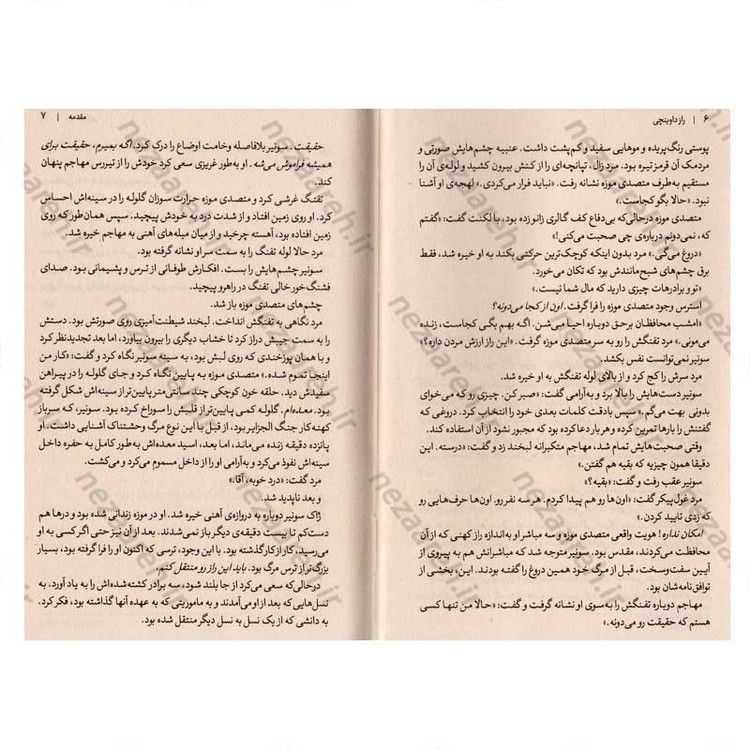 ۶ | راز داوینچی
پوستی رنگ‌پریده و موهایی سفید و کم‌پشت داشت. عنبیه چشم‌هایش صورتی و
مردمک آن قرمز تیره بود. مرد زال، تپانچه‌ای را از کتش بیرون کشید و لوله‌ی آن را
مستقیم به‌طرف متصدی موزه نشانه رفت. «نباید فرار می‌کردی.» لهجه‌ی او آشنا
نبود. «حالا بگو کجاست.»
متصدی موزه درحالی‌که بی‌دفاع کف گالری زانو زده بود، با لکنت گفت: «گفتم
که، نمی‌دونم درباره‌ی چی صحبت می‌کنی!»
«دروغ می‌گی.» مرد بدون اینکه کوچک‌ترین حرکتی بکند به او خیره شد، فقط
برق چشم‌های شبح‌مانندش بود که تکان می‌خورد.
«تو و برادرهات چیزی دارید که مال شما نیست.»
استرس وجود متصدی موزه را فرا گرفت. اون از کجا می‌دونه؟
«امشب محافظان برحق دوباره احیا می‌شن. اگه بهم بگی کجاست، زنده
می‌مونی.» مرد تفنگش را رو به سر متصدی موزه گرفت. «این راز ارزش مردن داره؟»
سونیر نمی‌توانست نفس بکشد.
مرد سرش را کج کرد و از بالای لوله تفنگش به او خیره شد.
سونیر دست‌هایش را بالا برد و به‌آرامی گفت: «صبر کن. چیزی رو که می‌خوای
بدونی بهت می‌گم.» سپس بادقت کلمات بعدی خود را انتخاب کرد. دروغی که
گفتنش را بارها تمرین کرده و هر بار دعا کرده بود که مجبور نشود از آن استفاده کند.
وقتی صحبت‌هایش تمام شد، مهاجم متکبرانه لبخند زد و گفت: «درسته. این
دقیقا همون چیزیه که بقیه هم گفتن.»
سونیر عقب رفت و گفت: «بقیه؟»
مرد غول‌پیکر گفت: «اون‌ها رو هم پیدا کردم. هر سه نفر رو. اون‌ها حرف‌هایی رو
که زدی تایید کردن.»
امکان نداره! هویت واقعی متصدی موزه و سه مباشر او به‌اندازه راز کهنی که از آن
محافظت می‌کردند، مقدس بود. سونیر متوجه شد که مباشرانش هم به پیروی از
آیین سفت‌وسخت، قبل از مرگ خود همین دروغ را گفته بودند. این، بخشی از
توافق‌نامه‌شان بود.
مهاجم دوباره تفنگش را به‌سوی او نشانه گرفت و گفت: «حالا من تنها کسی
هستم که حقیقت رو می‌دونه.»
مقدمه | ۷
حقیقت. سونیر بلافاصله وخامت اوضاع را درک کرد. اگه بمیرم، حقیقت برای
همیشه فراموش می‌شه. او به‌طور غریزی سعی کرد خودش را از تیررس مهاجم پنهان
کند.
تفنگ غرشی کرد و متصدی موزه حرارت سوزان گلوله را در سینه‌اش احساس
کرد. او روی زمین افتاد و از شدت درد به خودش پیچید. سپس همان‌طور که روی
زمین افتاده بود، آهسته چرخید و از میان میله‌های آهنی به مهاجم خیره شد.
مرد حالا لوله تفنگ را به سمت سر او نشانه گرفته بود.
سونیر چشم‌هایش را بست. افکارش طوفانی از ترس و پشیمانی بود. صدای
فشنگ‌خور خالی تفنگ در راهرو پیچید.
چشم‌های متصدی موزه باز شد.
مرد نگاهی به تفنگش انداخت. لبخند شیطنت‌آمیزی روی صورتش بود. دستش
را به سمت جیبش دراز کرد تا خشاب دیگری را بیرون بیاورد، اما بعد تجدیدنظر کرد
و با همان پوزخندی که روی لبش بود، به سینه سونیر نگاه کرد و گفت: «کار من
اینجا تموم شده.» متصدی موزه به پایین نگاه کرد و جای گلوله را در پیراهن
سفیدش دید. حلقه خون کوچکی چند سانتی‌متر پایین‌تر از سینه‌اش شکل گرفته
بود. معده‌ام. گلوله کمی پایین‌تر از قلبش را سوراخ کرده بود. سونیر، که سرباز
کهنه‌کار جنگ الجزایر بود، از قبل با این نوع مرگ وحشتناک آشنایی داشت. او
پانزده دقیقه زنده می‌ماند، اما بعد، اسید معده‌اش به‌طور کامل به حفره داخل
سینه‌اش نفوذ می‌کرد و به‌آرامی او را از داخل مسموم می‌کرد و می‌کشت.
مرد گفت: «درد خوبه، آقا.»
و بعد ناپدید شد.
ژاک سونیر دوباره به دروازه‌ی آهنی خیره شد. او در موزه زندانی شده بود و درها هم
دست‌کم تا بیست دقیقه‌ی دیگر باز نمی‌شدند. بعد از آن نیز حتی اگر کسی به او
می‌رسید، کار از کار گذشته بود. با این وجود، ترسی که اکنون او را فرا گرفته بود، بسیار
بزرگ‌تر از ترس مرگ بود. باید این راز رو منتقل کنم.
درحالی‌که سعی می‌کرد از جا بلند شود، سه برادر کشته‌شده‌اش را به یاد آورد. به
نسل‌هایی که بعد از او می‌آمدند و به ماموریتی که به عهده آنها گذاشته بود، فکر کرد.
به دانشی که از یک نسل به نسل دیگر منتقل شده بود.
nezaareh.ir